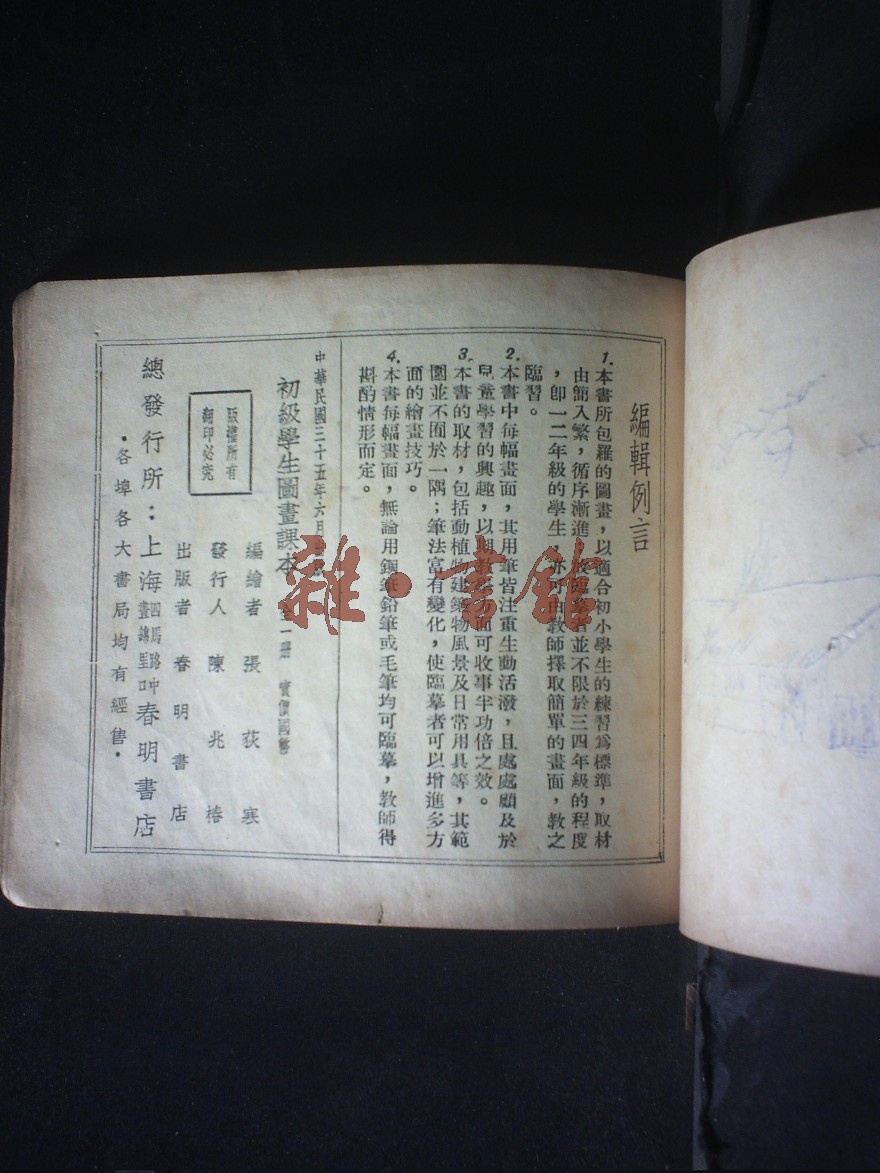 編輯例言
1.本書所包羅的圖畫，以適合初小學生的練習爲標準，取材
由簡入繁，循序漸進，故臨摹者並不限於三四年級的程度
，卽一二年級的學生，亦可由教師擇取簡單的畫面，教之
臨習。
2.本書中每幅畫面，其用筆皆注重生動活潑，且處處顧及於
兒童學習的興趣，以期教學方面可收事半功倍之效。
3.本書的取材，包括動植物建築物風景及日常用具等，其範
圍並不囿於一隅；筆法富有變化，使臨摹者可以增進多方
面的繪畫技巧。
4.本書每幅畫面，無論用鋼筆鉛筆或毛筆均可臨摹，教師得
斟酌情形而定。
中華民國三十五年六月
初級學生圖畫課本 全一册 實價國幣
版權所有
翻印必究
編繪者 張荻寒
發行人 陳兆椿
出版者 春明書店
總發行所：上海四馬路中畫錦里口春明書店
·各埠各大書局均有經售·
雜·書館